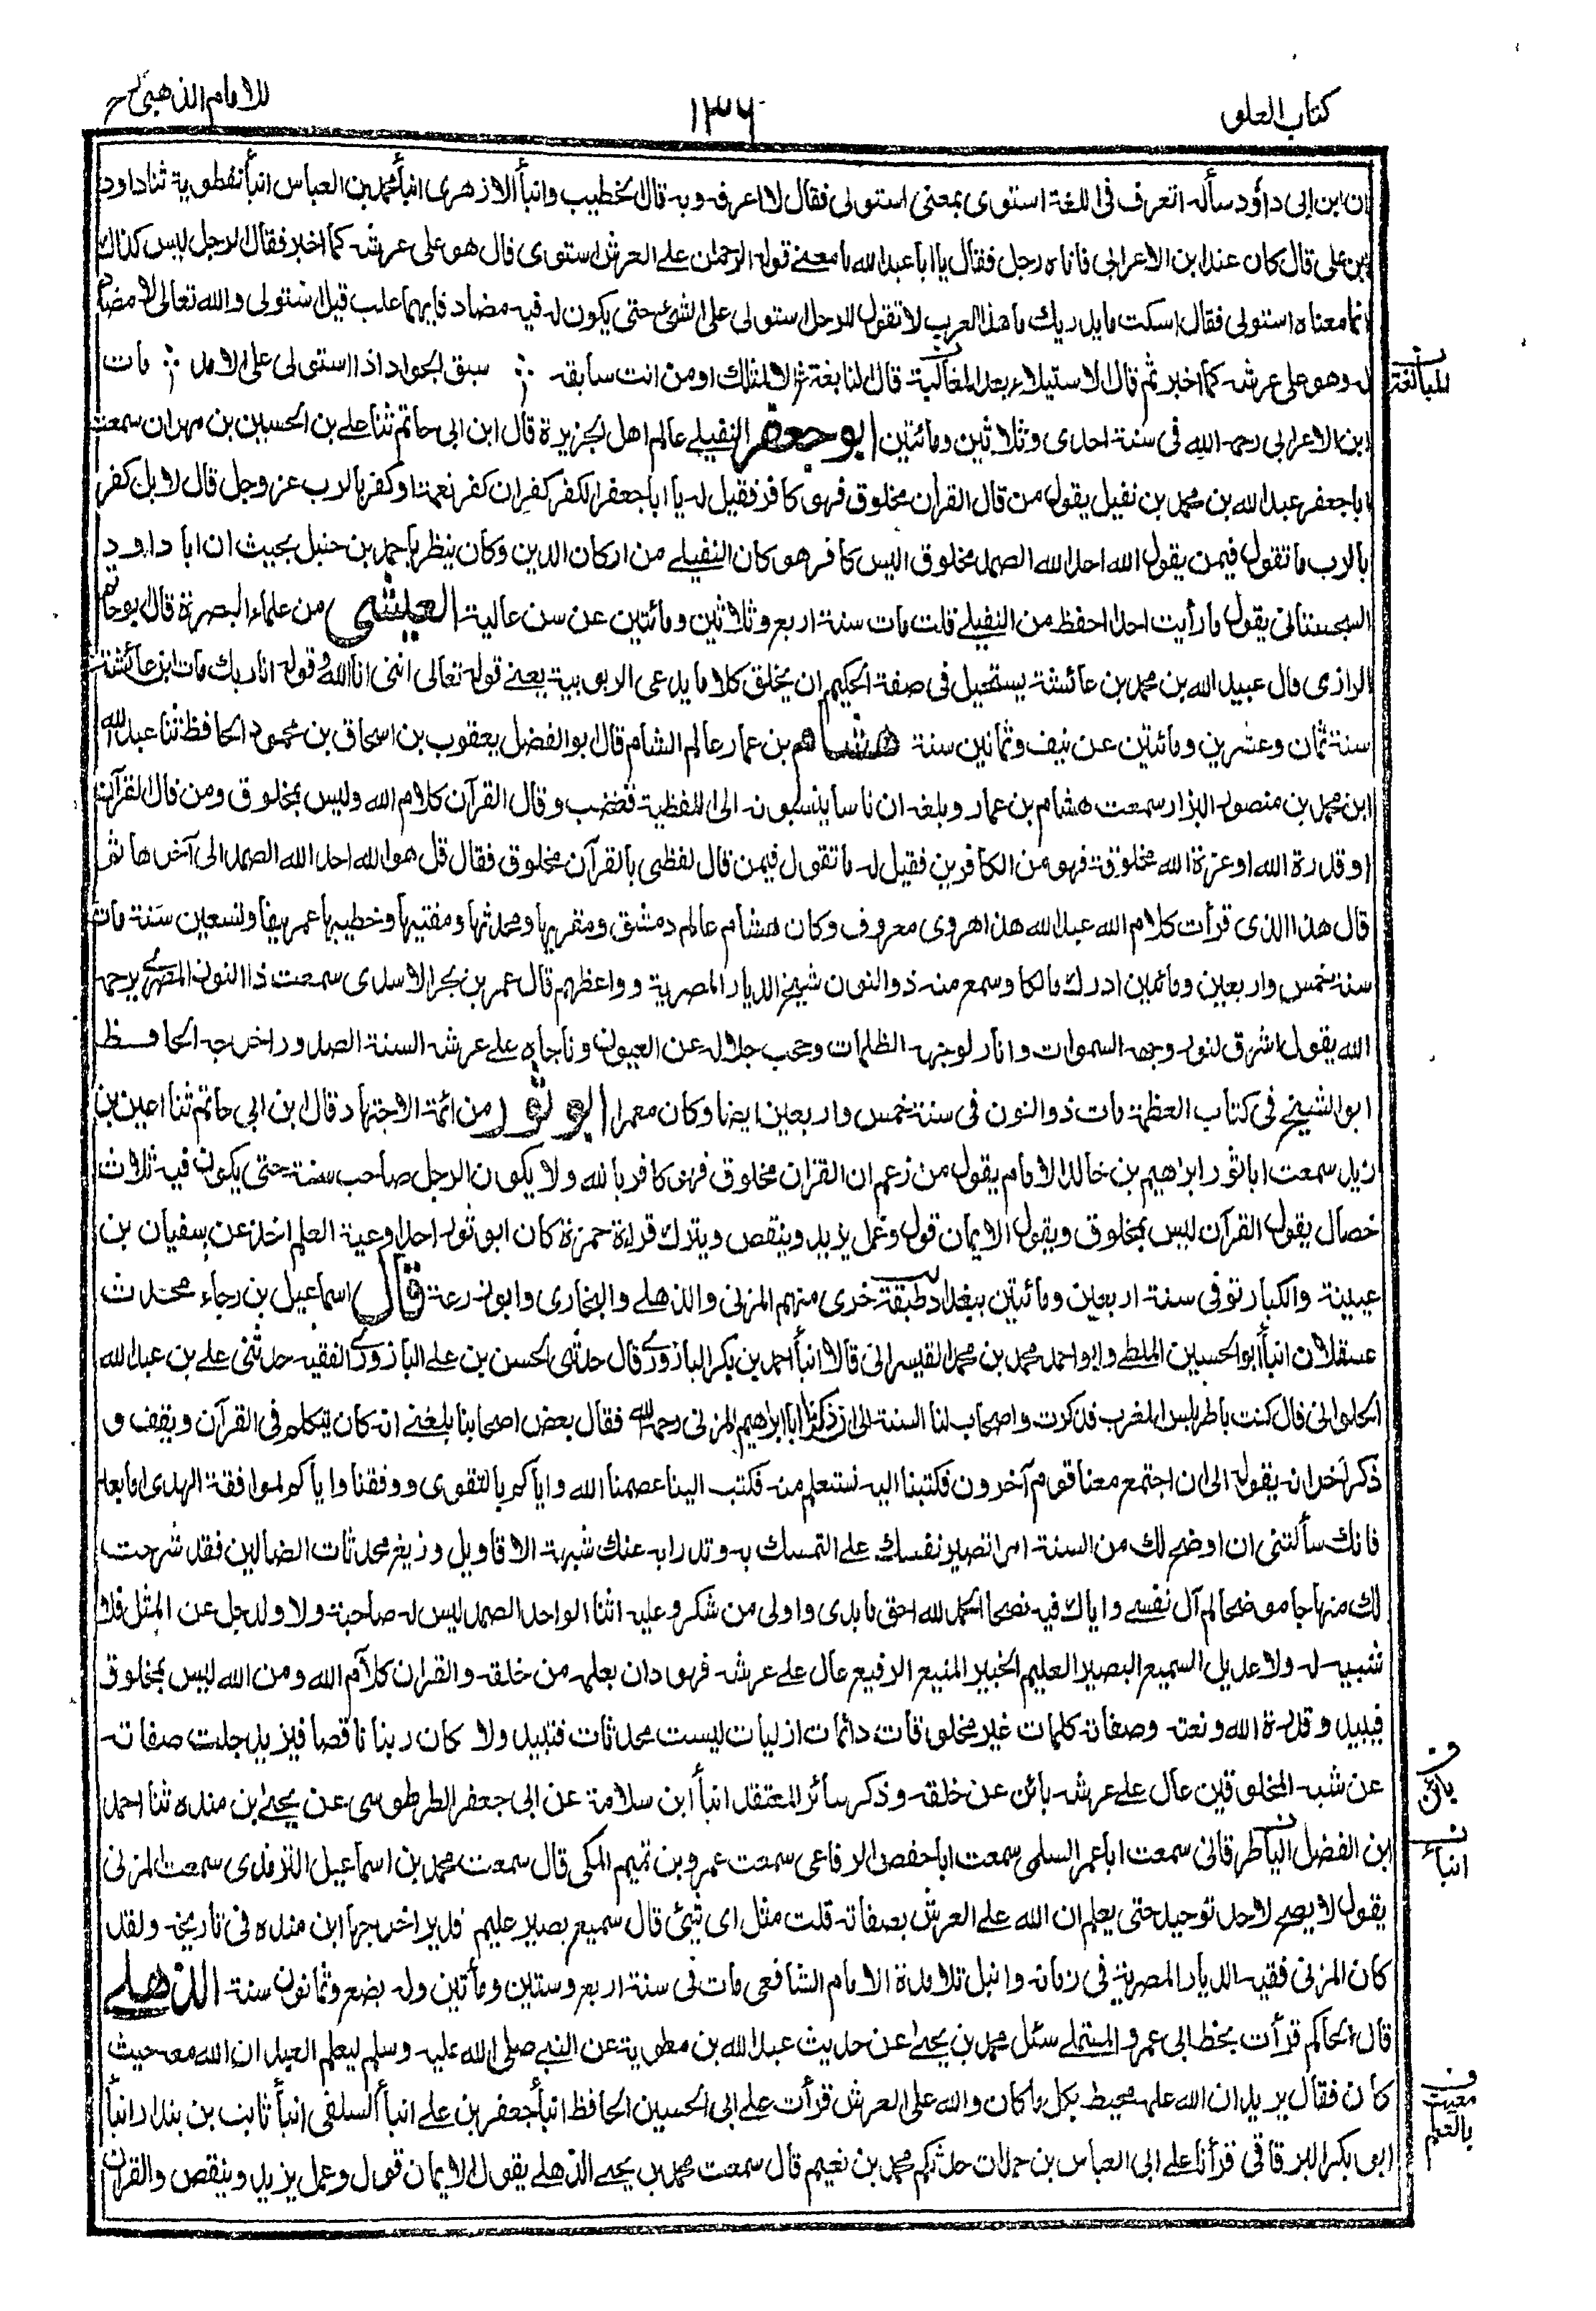 كتاب العلو
١٣٦
للامام الذهبي رح
ان ابن ابى داؤد سأله اتعرف فى اللغة استوى بمعنى استولى فقال لا اعرف وبه قال الخطيب وانبأ الازهرى انبأ محمد بن العباس انبأ نفطوية ثنا داود
بن على قال كان عند ابن الاعرابى فاتاه رجل فقال يا ابا عبد الله ما معنے قوله الرحمان على العرش استوى قال هو على عرشه كما اخبر فقال الرجل ليس كذاك
انما معناه استولى فقال اسكت ما يدريك ما هذا العرب لا تقول للرجل استولى على الشئ حتى يكون له فيه مضاد فايهما غلب قيل استولى والله تعالى لا مضاد
له وهو على عرشه كما اخبر ثم قال الاستيلاء بعد المغالبة قال النابغة الا لمثلك او من انت سابقه ∴ سبق الجواد اذا استولى على الامد ∴ مات
المبالغة
ابن الاعرابى رحمه الله فى سنة احدى وثلاثين ومائتين ابو جعفر النفيلے عالم اهل الجزيرة قال ابن ابى حاتم ثنا على بن الحسين بن مهران سمعت
ابا جعفر عبد الله بن محمد بن نفيل يقول من قال القرأن مخلوق فهو كافر فقيل له يا ابا جعفر الكفر كفران كفر نعمة او كفر بالرب عز وجل قال لا بل كفر
بالرب ما تقول فيمن يقول الله احد الله الصمد مخلوق اليس كافر هو كان النفيلے من اركان الدين وكان ينظر باحمد بن حنبل بحيث ان ابا داود
السجستانى يقول ما رأيت احدا احفظ من النفيلے قلت مات سنة اربع وثلاثين ومائتين عن سن عالية العيشى من علماء البصرة قال ابو حاتم
الرازى قال عبيد الله بن محمد بن عائشة يستحيل فى صفة الحكيم ان يخلق كلاما يدعى الربوبية يعنے قوله تعالى اننى انا الله وقوله انا ربك مات ابن عائشة
سنة ثمان وعشرين ومائتين عن نيف وثمانين سنة هشام بن عمار عالم الشام قال ابو الفضل يعقوب بن اسحاق بن محمود الحافظ ثنا عبد الله
ابن محمد بن منصور البزار سمعت هشام بن عمار وبلغه ان ناسا ينسبونه الى اللفظية فغضب وقال القرآن كلام الله وليس بمخلوق ومن قال القرآن
او قدرة الله او عزة الله مخلوقة فهو من الكافرين فقيل له ما تقول فيمن قال لفظى بالقرآن مخلوق فقال قل هو الله احد الله الصمد الى آخرها ثم
قال هذا الذى قرأت كلام الله عبد الله هذا هروى معروف وكان هشام عالم دمشق ومقريها ومحدثها ومفتيها وخطيبها عمر نيفا وتسعين سنة مات
سنة خمس واربعين ومائتين ادرك مالكا وسمع منه ذو النون شيخ الديار المصرية وواعظهم قال عمر بن بحر الاسدى سمعت ذا النون المصرى يرحمه
الله يقول اشرق لنور وجهه السموات وانار لوجهه الظلمات وحجب جلاله عن العيون وناجاه على عرشه السنة الصدور اخرجه الحافظ
ابو الشيخ فى كتاب العظمة مات ذو النون فى سنة خمس واربعين ايضا وكان معمرا ابو ثور من ائمة الاجتهاد قال ابن ابى حاتم ثنا اعين بن
زيد سمعت ابا ثور ابراهيم بن خالد الامام يقول من زعم ان القرآن مخلوق فهو كافر بالله ولا يكون الرجل صاحب سنة حتى يكون فيه ثلاث
خصال يقول القرآن ليس بمخلوق ويقول الايمان قول وعمل يزيد وينقص ويترك قراءة حمزة كان ابو ثور احد اوعية العلم اخذ عن سفيان بن
عيينة والكبار توفى سنة اربعين ومائتين ببغداد طبقة اخرى منهم المزنى والذهلے والبخارى وابو زرعة قال اسماعيل بن رجاء محدث
عسقلان انبأ ابو الحسين الملطے وابو احمد محمد بن محمد القيسرانى قالا انبأ احمد بن بكر البازورى قال حدثنى الحسن بن على البازورى الفقيه حدثنى على بن عبد الله
الحلوانى قال كنت باطرابلس المغرب فذكرت واصحاب لنا السنة الى ان ذكرنا ابا ابراهيم المزنى رحمه الله فقال بعض اصحابنا بلغنے انه كان يتكلم فى القرآن ويقف و
ذكر آخر انه يقول الى ان اجتمع معنا قوم آخرون فكتبنا اليه نستعلم منه فكتب الينا عصمنا الله واياكم بالتقوى ووفقنا واياكم لموافقة الهدى اما بعد
فانك سألتنى ان اوضح لك من السنة امرا تصير نفسك على التمسك به وتدرا به عنك شبهة الاقاويل وزيغ محدثات الضالين فقد شرحت
لك منهاجا موضحا لم آل نفسے واياك فيه نصحا الحمد لله احق ما بدى واولى من شكر وعليه اثنا الواحد الصمد ليس له صاحبة ولا ولد جل عن المثل فلا
شبيه له ولا عديل السميع البصير العليم الخبير المنيع الرفيع عال على عرشه فهو دان بعلمه من خلقه والقرآن كلام الله ومن الله ليس بمخلوق
فيبيد وقدرة الله ونعته وصفاته كلمات غير مخلوقات دائمات ازليات ليست محدثات فتبيد ولا كان ربنا ناقصا فيزيد جلت صفاته
عن شبه المخلوقين عال على عرشه بائن عن خلقه وذكر سائر المعتقد انبأ ابن سلامة عن ابى جعفر الطرطوسى عن يحيى بن منده ثنا احمد
بائن
ابن الفضل الباطرقانى سمعت ابا عمر السلمى سمعت ابا حفص الرفاعى سمعت عمرو بن تميم المكى قال سمعت محمد بن اسماعيل الترمذى سمعت المزنى
انباء
يقول لا يصح لاحد توحيد حتى يعلم ان الله على العرش بصفاته قلت مثل اى شئ قال سميع بصير عليم قدير اخرجها ابن منده فى تاريخه ولقد
كان المزنى فقيه الديار المصرية فى زمانه وانبل تلامذة الامام الشافعى مات فى سنة اربع وستين ومأتين وله بضع وثمانون سنة الذهلے
قال الحاكم قرأت بخط ابى عمرو المستملے سئل محمد بن يحيى عن حديث عبد الله بن معاوية عن النبے صلى الله عليه وسلم ليعلم العبد ان الله معه حيث
كان فقال يريد ان الله علمه محيط بكل ما كان والله على العرش قرأت على ابى الحسين الحافظ انبأ جعفر بن على انبأ السلفى انبأ ثابت بن بندار انبأ
معيت بالعلم
ابو بكر البرقانى قرأنا على ابى العباس بن حمدان حدثكم محمد بن نعيم قال سمعت محمد بن يحيے الذهلے يقول الايمان قول وعمل يزيد وينقص والقرآن